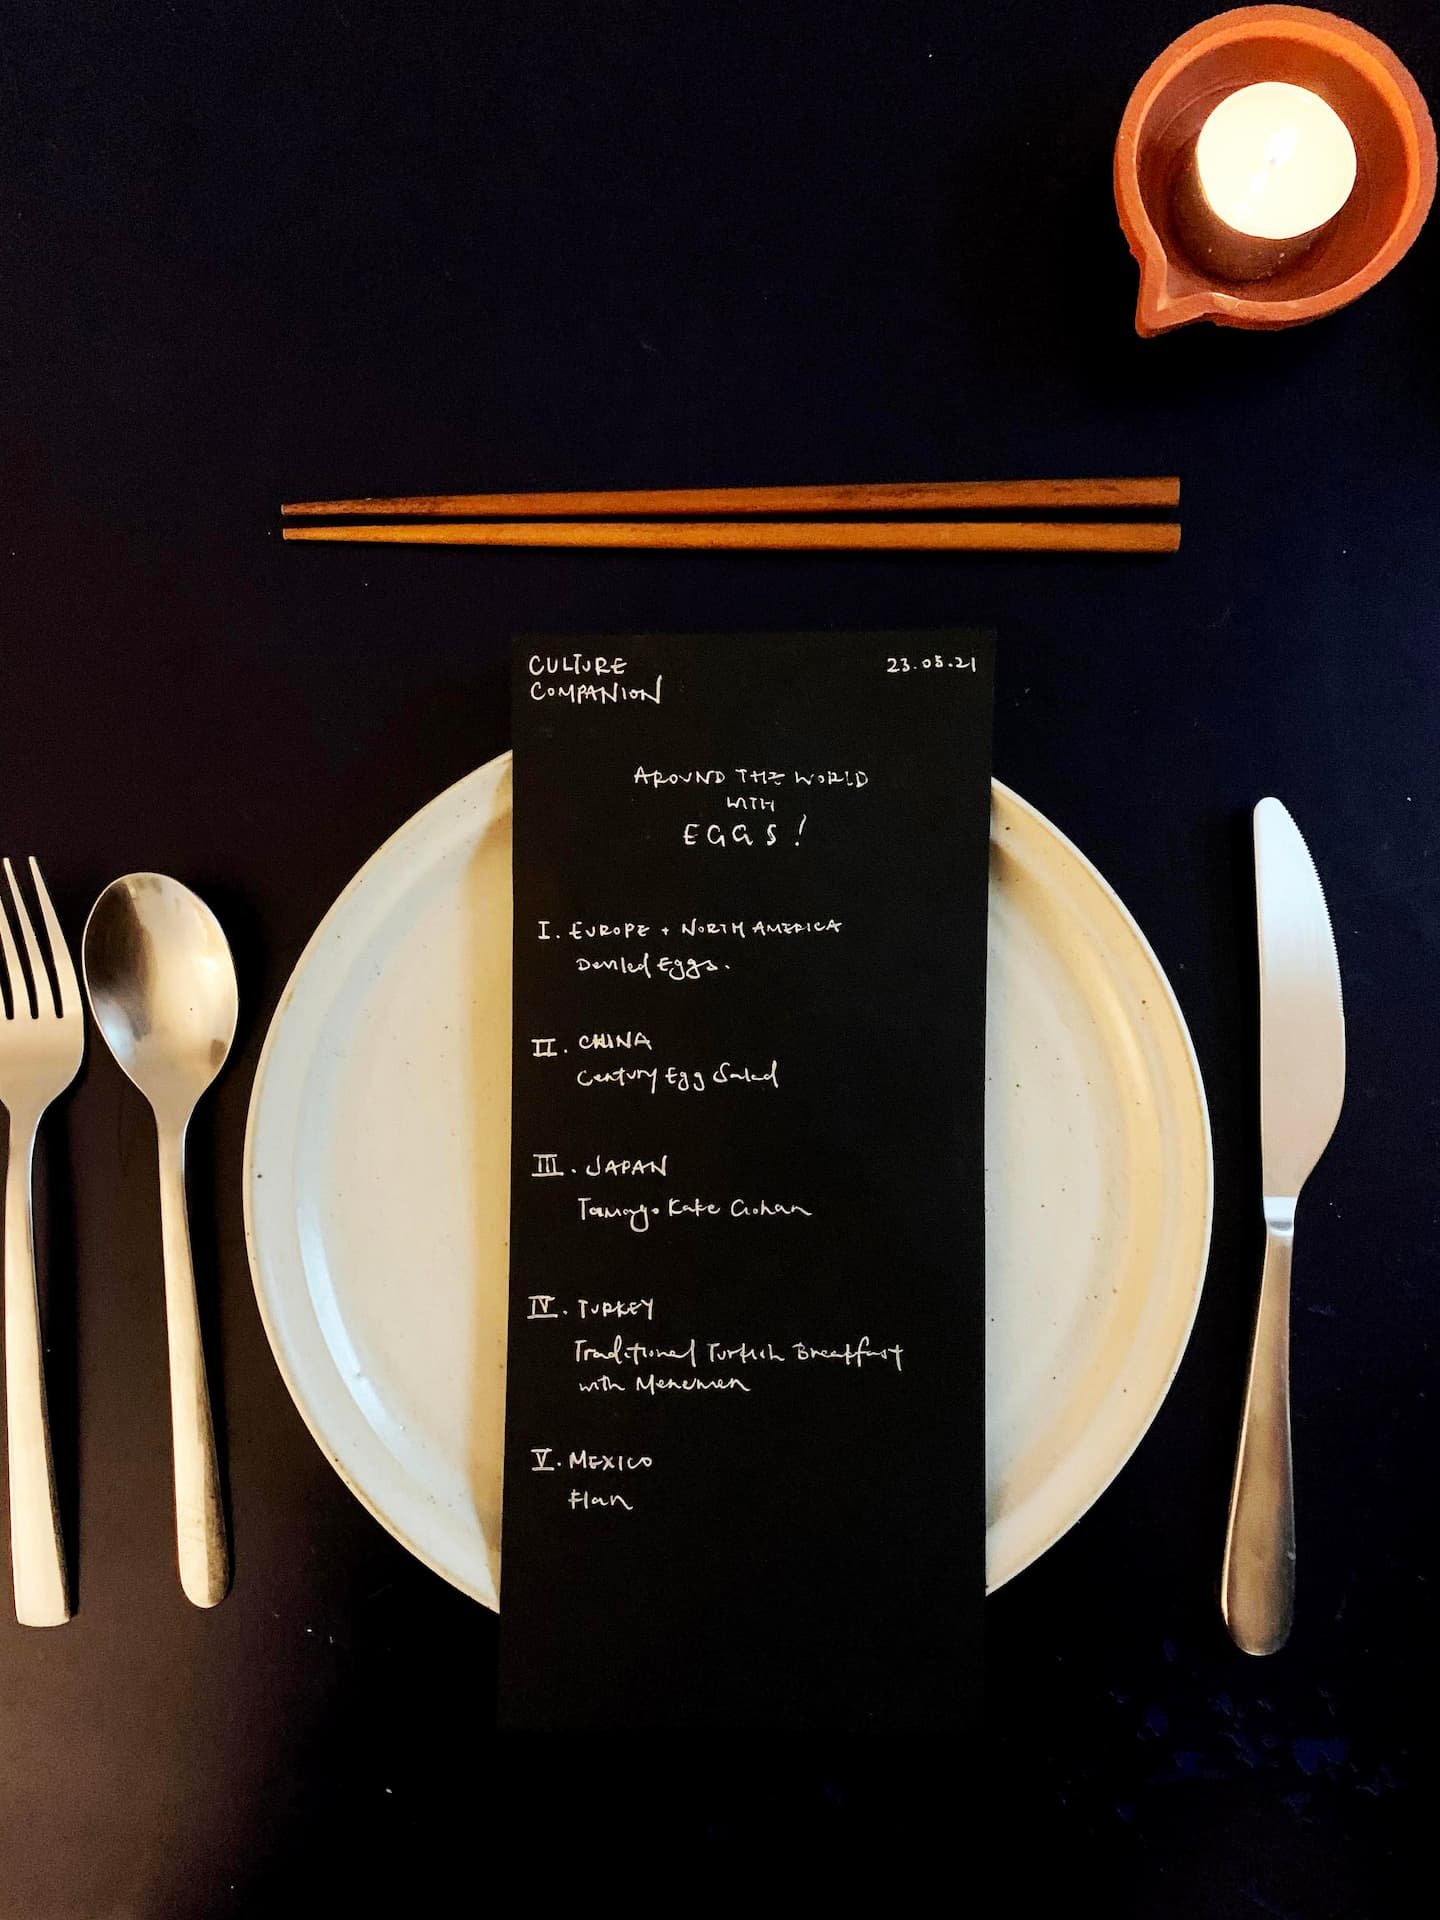 CULTURE
COMPANION
23.05.21
AROUND THE WORLD
WITH
EGGS!
I. EUROPE + NORTH AMERICA
Deviled Eggs.
II. CHINA
Century Egg Salad
III. JAPAN
Tamago Kake Gohan
IV. TURKEY
Traditional Turkish Breakfast
with Menemen
V. MEXICO
Flan